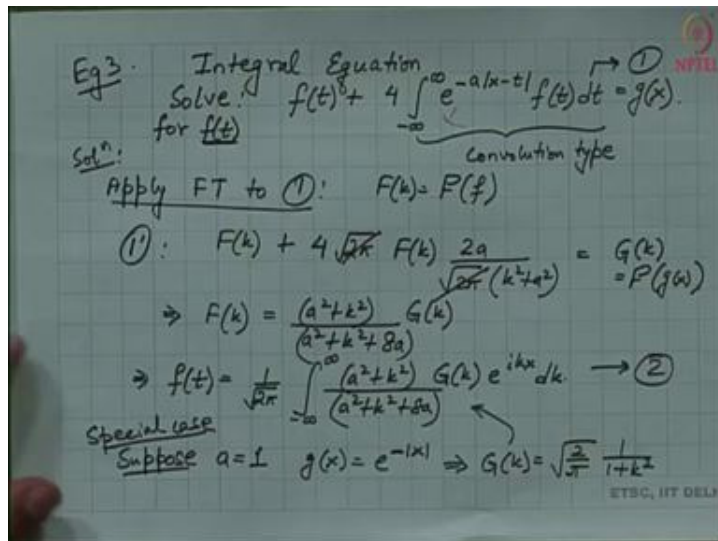 Eg 3. Integral Equation → ①
NPTEL
Solve: f(t) + 4 ∫_{-∞}^{∞} e^{-a|x-t|} f(t) dt = g(x).
for f(t)
convolution type
Solⁿ:
Apply FT to ①: F(k) = F(f)
①': F(k) + 4 √2π F(k) 2a / √2π (k²+a²) = G(k)
= F(g(x))
⇒ F(k) = (a²+k²) / (a²+k²+8a) G(k)
⇒ f(t) = 1/√2π ∫_{-∞}^{∞} (a²+k²) / (a²+k²+8a) G(k) e^{ikx} dk. → ②
Special case
Suppose a=1 g(x) = e^{-|x|} ⇒ G(k) = √(2/π) 1/(1+k²)
ETSC, IIT DEL